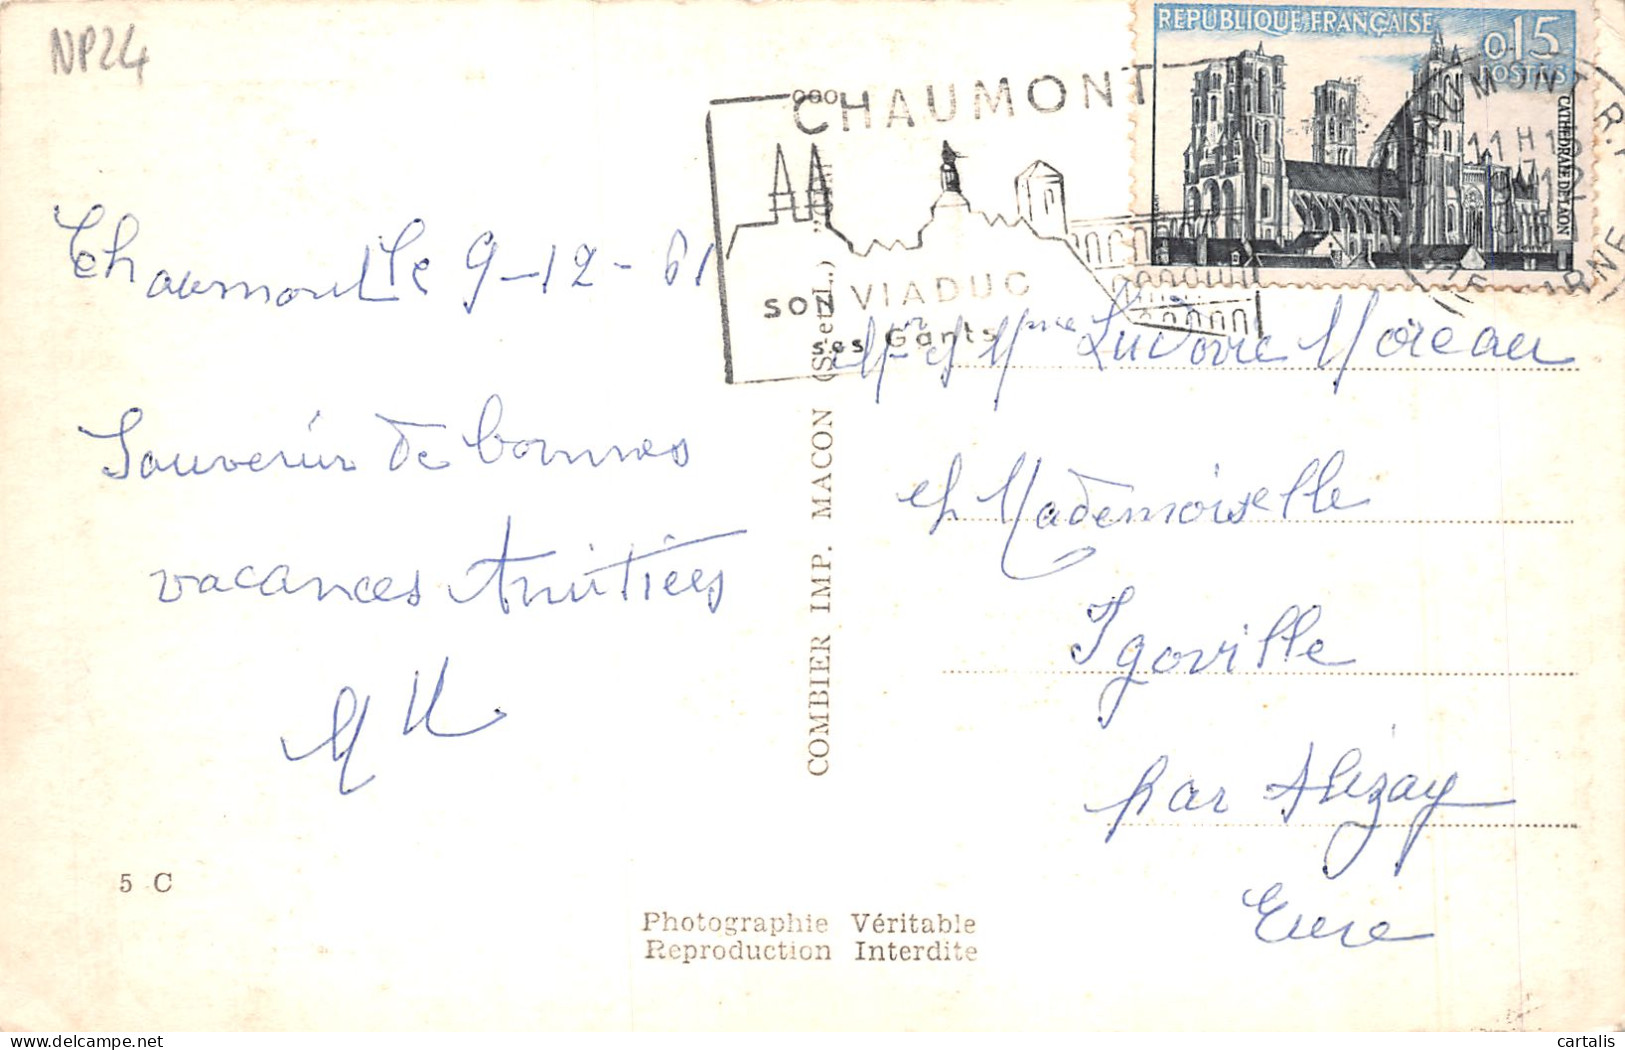 NP24
REPUBLIQUE FRANÇAISE
0,15
POSTES
CATHEDRALE DE LAON
CHAUMONT
SON VIADUC
ses Gants
CHAUMONT R.P.
11 H 15
9-12
HTE MARNE
Chaumont le 9-12-61
Souvenir de bonnes
vacances Amitiées
Mr et Mme Ludovic Moreau
et Mademoiselle
Igoville
par Alizay
Eure
COMBIER IMP. MACON (S. et L.)
5 C
Photographie Véritable
Reproduction Interdite
cartalis
delcampe.net